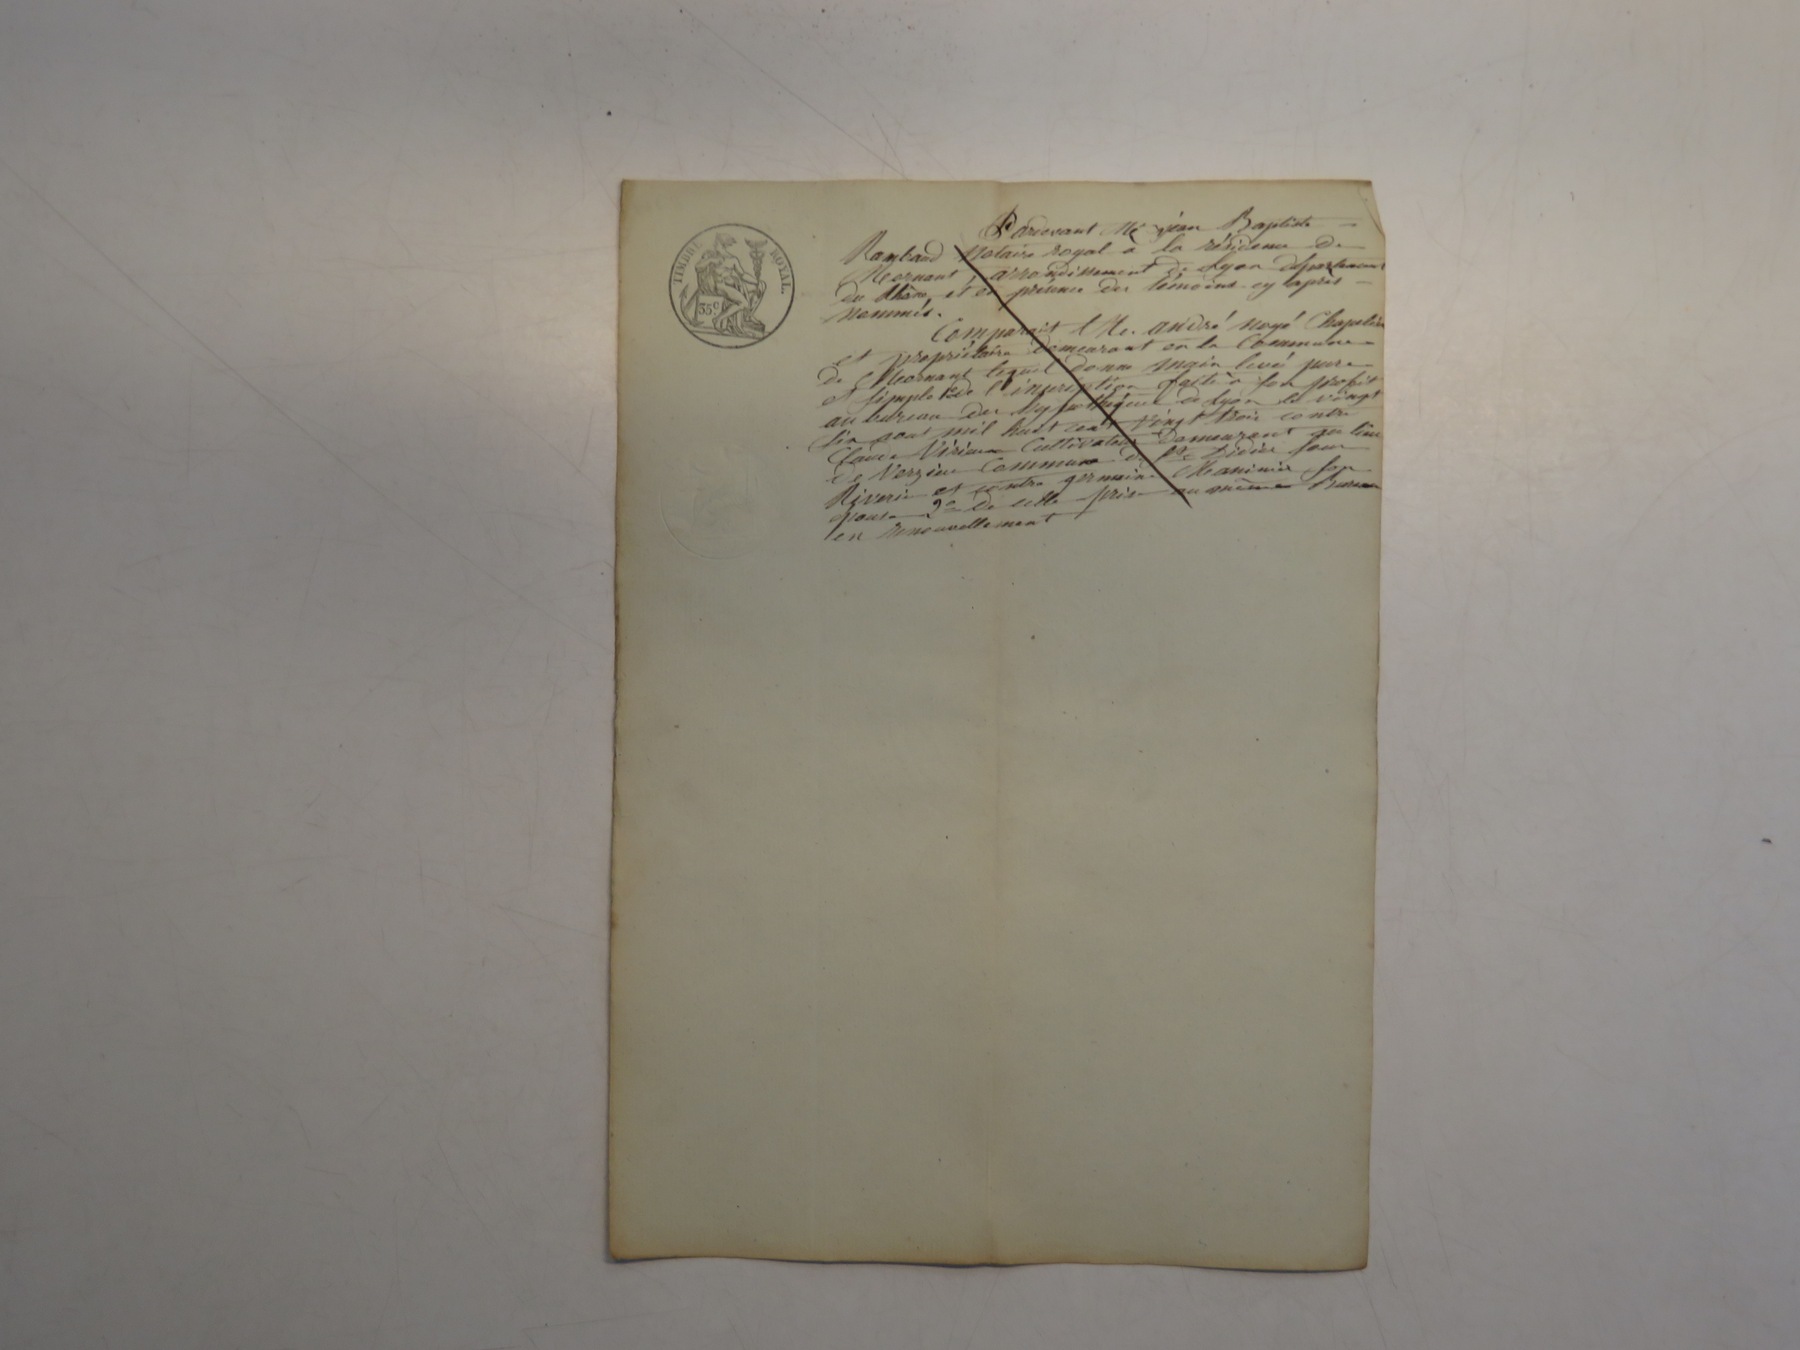 TIMBRE ROYAL.
35c
Pardevant Me jean Baptiste
Rambaud Notaire royal à la résidence de
Mornant, arrondissement de Lyon département
du Rhône, et en présence des témoins cy après
Nommés.
Comparait Me. andré noyé Chapelier
et propriétaire demeurant en la Commune
de Mornant lequel donne main levé pure
et simple de l'inscription faite à son profit
au bureau des hypothèques de Lyon le vingt
six aout mil huit cent vingt trois contre
Claude Cultivateur demeurant au lieu
de Commune de St Didier sous
Riverie et contre germaine son
épouse 2o de celle prise au même Bureau
en renouvellement